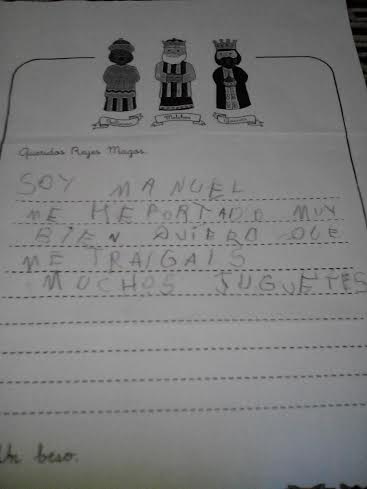 Melchor
Queridos Reyes Magos
SOY MANUEL
ME HE PORTADO MUY
BIEN QUIERO QUE
ME TRAIGAIS
MUCHOS JUGUETES
Un beso.